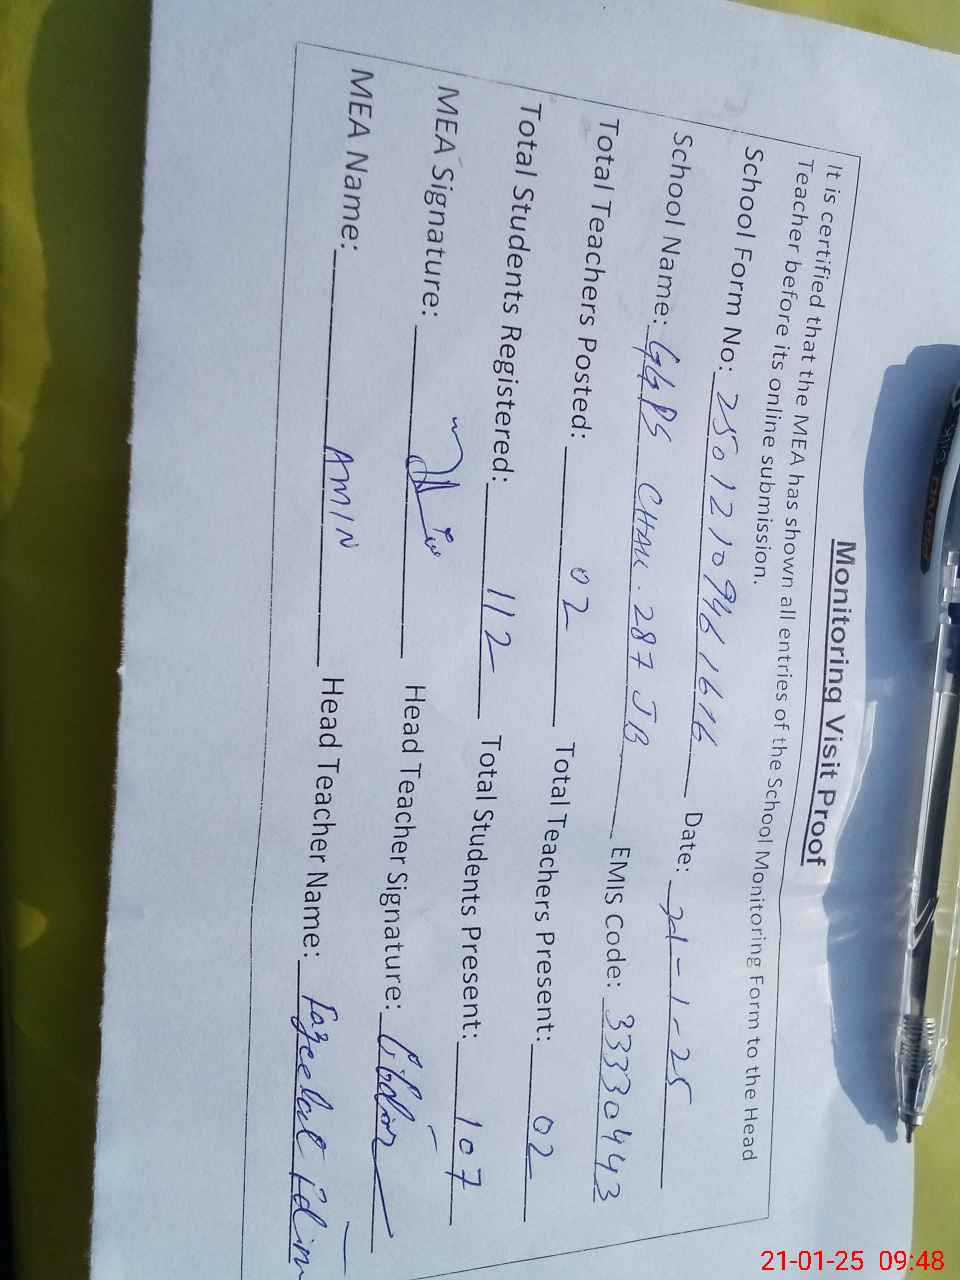 Monitoring Visit Proof
It is certified that the MEA has shown all entries of the School Monitoring Form to the Head
Teacher before its online submission.
School Form No: 25012109461616 Date: 21-1-25
School Name: GGPS CHAK. 287 JB EMIS Code: 33330443
Total Teachers Posted: 02 Total Teachers Present: 02
Total Students Registered: 112 Total Students Present: 107
MEA Signature: Head Teacher Signature:
MEA Name: AMIN Head Teacher Name:
21-01-25 09:48